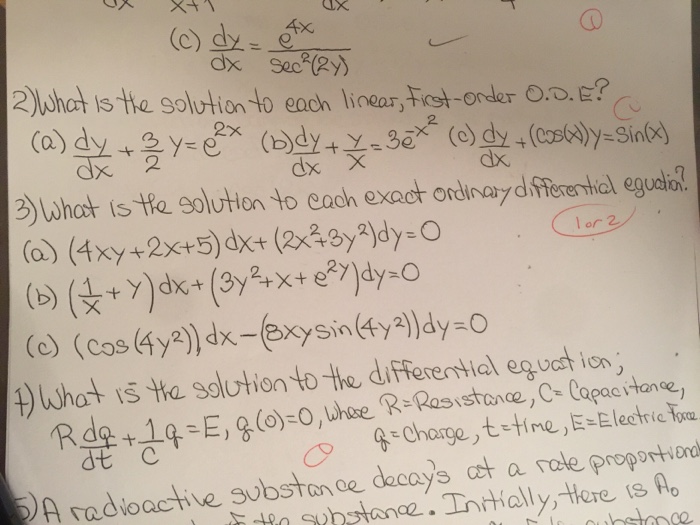 dx x+1 dx
(c) dy/dx = e^(4x)/sec²(2y) ①
2) What is the solution to each linear, first-order O.D.E?
(a) dy/dx + 3/2 y = e^(2x) (b) dy/dx + y/x = 3e^(-x²) (c) dy/dx + (cos(x))y = sin(x)
3) What is the solution to each exact ordinary differential equation?
1 or 2
(a) (4xy+2x+5)dx + (2x²+3y²)dy=0
(b) (1/x + y)dx + (3y²+x+e^(2y))dy=0
(c) (cos(4y²))dx - (8xy sin(4y²))dy=0
4) What is the solution to the differential equation;
R dq/dt + 1/C q = E, q(0)=0, whose R=Resistance, C=Capacitance,
q=charge, t=time, E=Electric Force
5) A radioactive substance decay's at a rate proportional
the substance. Initially, there is A₀
substance